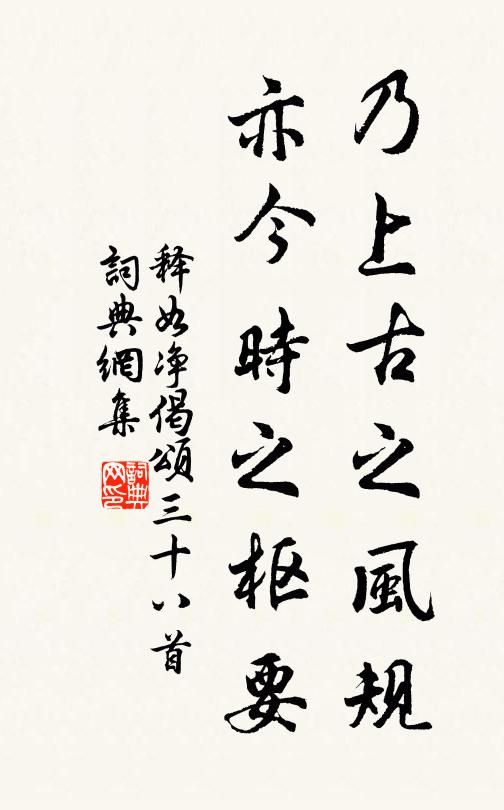 乃上古之風規
亦今時之枢要
释如净偈頌三十八首
詞典網集
詞典网印